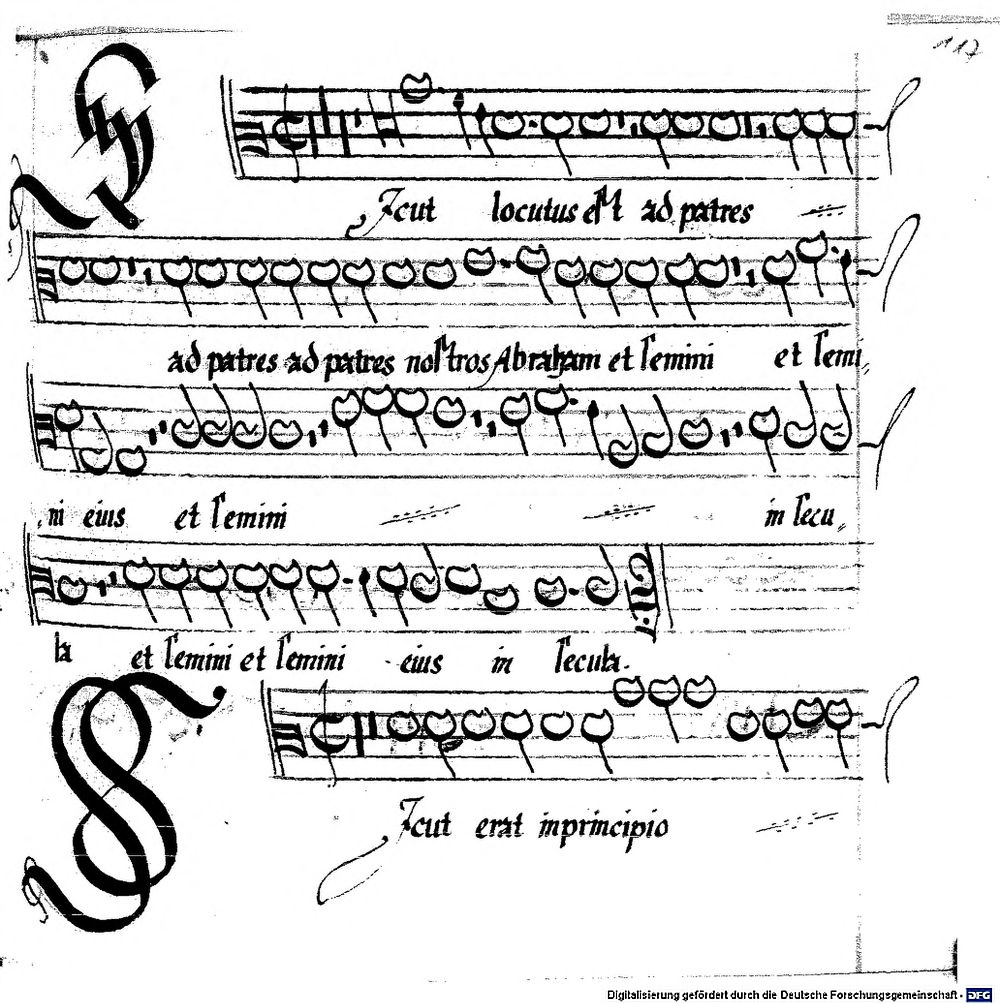 117
Sicut locutus est ad patres
ad patres ad patres nostros Abraham et semini et semi,
,ni eius et semini in secu,,
la et semini et semini eius in secula.
Sicut erat in principio
Digitalisierung gefördert durch die Deutsche Forschungsgemeinschaft - DFG